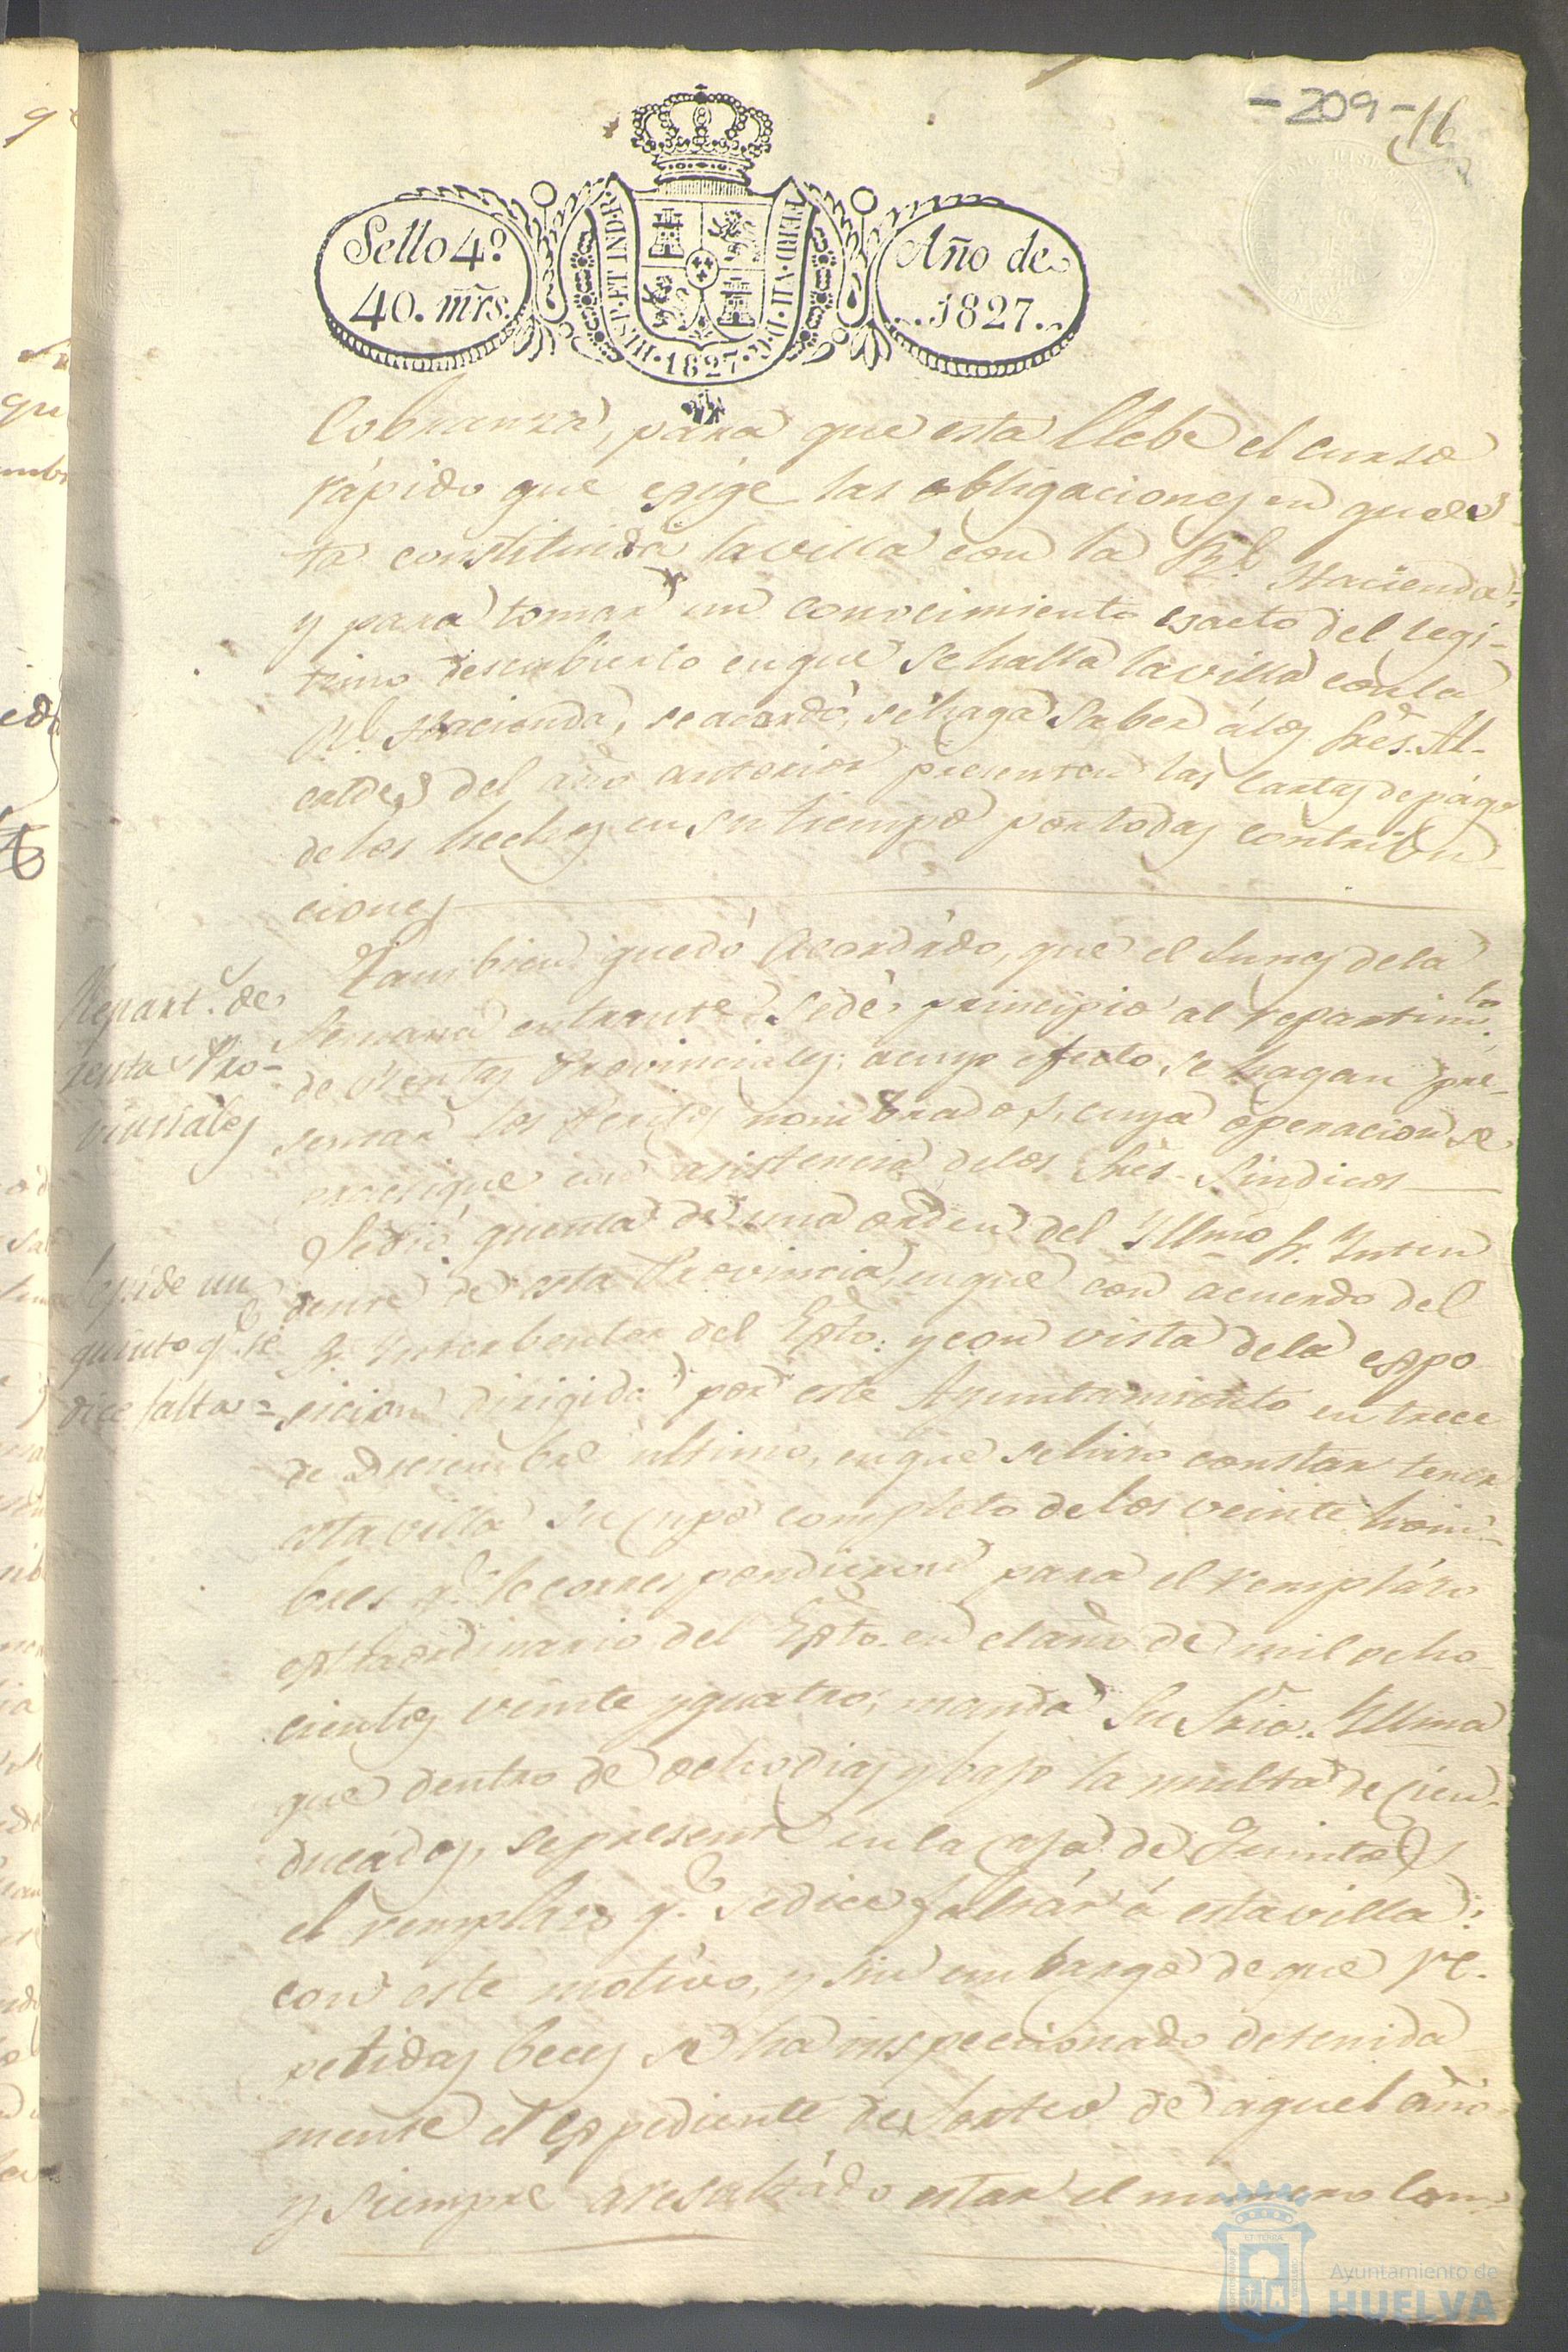 -209-
16
Sello 4º
40. mrs.
HISP. ET IND. R.
FERD. VII. D. G.
1827
Año de
1827.
Cobranza, para que esta llebe el curso
rápido que esige las obligaciones en que es-
ta constituida la villa con la Rl. Hacienda;
y para tomar un conocimiento esacto del legi-
timo descubierto en que se halla la villa con la
Rl. Hacienda, se acordó, se haga saber á los Sres. Al-
caldes del año anterior presenten las Cartas de pago
de los hechos en su tiempo por todas contribu-
ciones
Repart.º de
rentas Pro-
vinciales
Tambien quedó Acordado, que el lunes de la
semana entrante se dé principio al repartimto.
de Rentas Provinciales; a cuyo efecto, se hagan pre-
sentar los Peritos nombrados, cuya operacion se
practique con asistencia de los Sres. Sindicos
Se pide un
quinto q.e se
dice falta =
Se dió quenta de una orden del Yllmo Sr. Inten
dente de esta Provincia, en que con acuerdo del
Sr. Interbentor del Exto. y con vista de la expo
sicion dirigida por este Ayuntamiento en trece
de Diciembre ultimo, en que se hizo constar tener
esta villa su cupo completo de los veinte hom-
bres q.e le correspondieron para el remplázo
extraordinario del Exto. en el año de mil ocho-
cientos veinte y quatro; manda Su Sria. Yllma
que dentro de ocho dias y bajo la multa de cien
ducádos, se presente en la caja de Quintos
el remplazo q.e se dice faltár á esta villa:
con este motivo, y sin embargo de que re-
petidas beces se ha inspeccionado detenida
mente el expediente de Sorteo de aquel año
y siempre a resultádo estar el numero com-
Ayuntamiento de
HUELVA